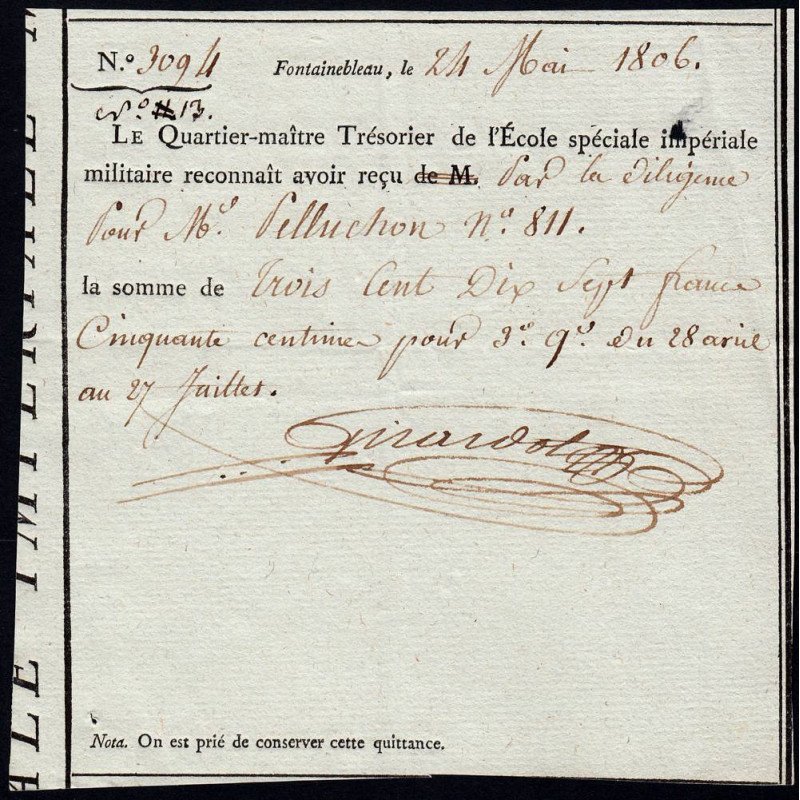 N.º 3094 Fontainebleau, le 24 Mai 1806.
Nº 13.
LE Quartier-maître Trésorier de l'École spéciale impériale
militaire reconnaît avoir reçu de M. Par la diligence
pour Mr. Pelluchon nº 811.
la somme de Trois Cent Dix Sept francs
Cinquante centimes pour 3e. qr. du 28 avril
au 27 Juillet.
Girardot
Nota. On est prié de conserver cette quittance.